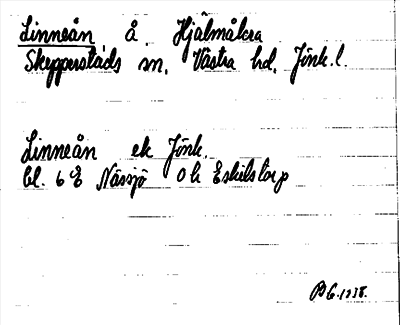 Linneån å Hjälmåkra
Skepperstads sn. Västra hd. Jönk. l.
Linneån ek Jönk.
bl. 6 E Nässjö Oh Eskilstorp
BG. 1938.